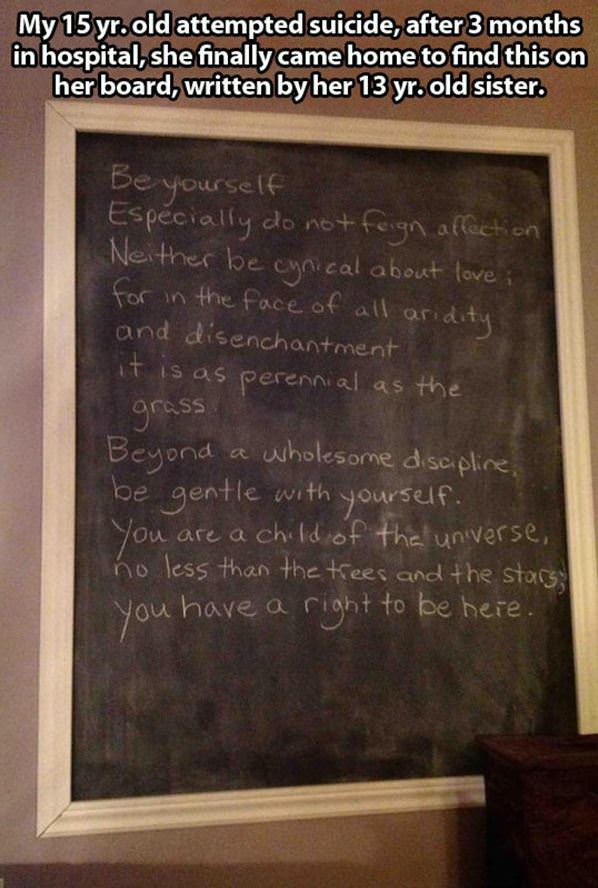 My 15 yr. old attempted suicide, after 3 months
in hospital, she finally came home to find this on
her board, written by her 13 yr. old sister.
Be yourself
Especially do not feign affection
Neither be cynical about love;
for in the face of all aridity
and disenchantment
it is as perennial as the
grass.
Beyond a wholesome discipline,
be gentle with yourself.
You are a child of the universe,
no less than the trees and the stars;
you have a right to be here.